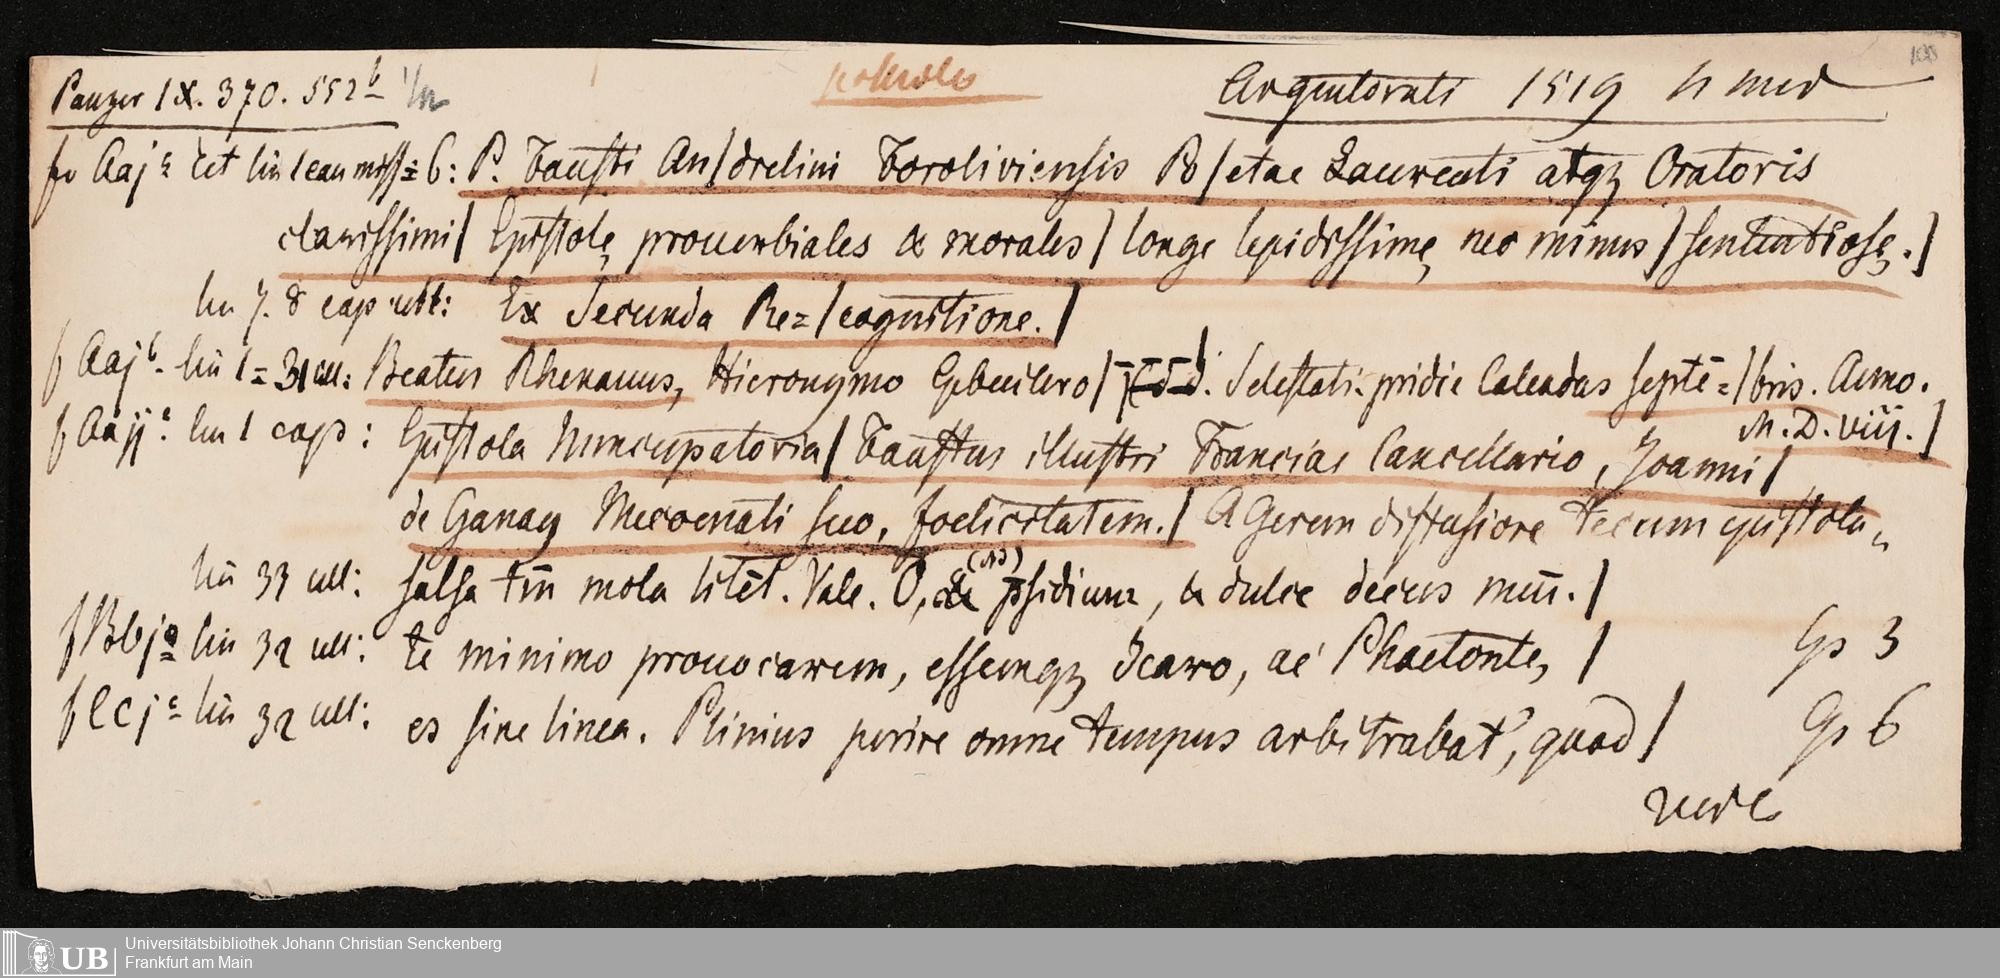 Panzer IX. 370. 552b
Argentorati 1519
100
P. Fausti An/drelini Foroliviensis Po/etae Laureati atqꝫ Oratoris
clarissimi/ Epistolę prouerbiales & morales/ longe lepidissimę, nec minus/ sententiosę./
lin 7. & cap ult: Ex Secunda Re=/cognitione./
f Aajb lin 1=31 ult: Beatus Rhenanus, Hieronymo Gebuilero/ Selestati. pridie Calendas septē=/bris. Anno.
M.D.viij./
f Aaija lin 1 caps: Epistola Nuncupatoria/ Faustus illustri Franciae Cancellario, Joanni/
de Ganay Mecoenati suo, foelicitatem./ AGerem diffusiore tecum epistola,,
lin 33 ult: salsa tm̄ mola litēt. Vale. O, & p̄sidium, & dulce decus meū./
f Bbja lin 32 ult: te minimo prouocarem, essemqꝫ Icaro, ac Phaetonte, /
3
f Ccja lin 32 ult: es sine linea. Plinius perire omne tempus arbitrabat', quod/
6
Universitätsbibliothek Johann Christian Senckenberg
Frankfurt am Main
UB